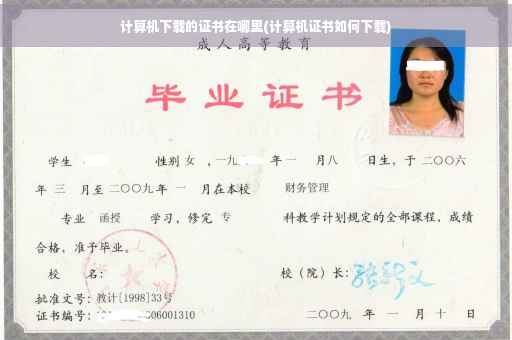 计算机下载的证书在哪里(计算机证书如何下载)
成人高等教育
毕业证书
学生 性别 女 ，一九 年 一 月 八 日生，于 二〇〇六
年 三 月至 二〇〇九 年 一 月在本校 财务管理
专业 函授 学习，修完 专 科教学计划规定的全部课程，成绩
合格，准予毕业。
校 名： 校（院）长：
批准文号：教计[1998]33号
证书编号：1 006001310 二〇〇九 年 一 月 十 日